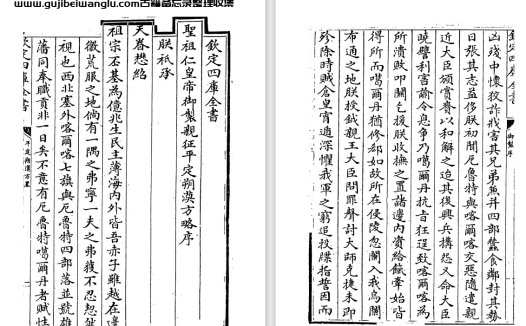 www.gujibeiwanglu.com古籍备忘录整理收集
欽定四庫全書
聖祖仁皇帝御製親征平定朔漠方略序
朕祗承
天眷懋紹
祖宗丕基為億兆生民主薄海內外皆吾赤子雖越在邊
徼荒服之地倘有一隅之弗寧一夫之弗獲不忍恝然
視也西北塞外喀爾喀七旗與厄魯特四部落並號雄
藩同奉職貢非一日矣不意有厄魯特噶爾丹者賦性
欽定四庫全書
欽定四庫全書
御製序
凶殘中懷狡詐戕害其兄弟兼并四部蠶食鄰封其勢
日張其志益侈朕初聞厄魯特與喀爾喀交惡隨遣親
近大臣頒賞賚以和解之迨其後興兵搆怨又命大臣
曉譬利害諭令息爭乃噶爾丹抗旨狂逞致喀爾喀為
所潰敗叩關乞援朕收撫之置諸邊內資給餼牽始皆
得所而噶爾丹猶修郤如故所在侵陵忽闌入我烏闌
布通之地朕授鉞親王大臣問罪聲討大師克捷未即
殄除時賊倉皇宵遁深懼我軍之窮追投牒指誓因而